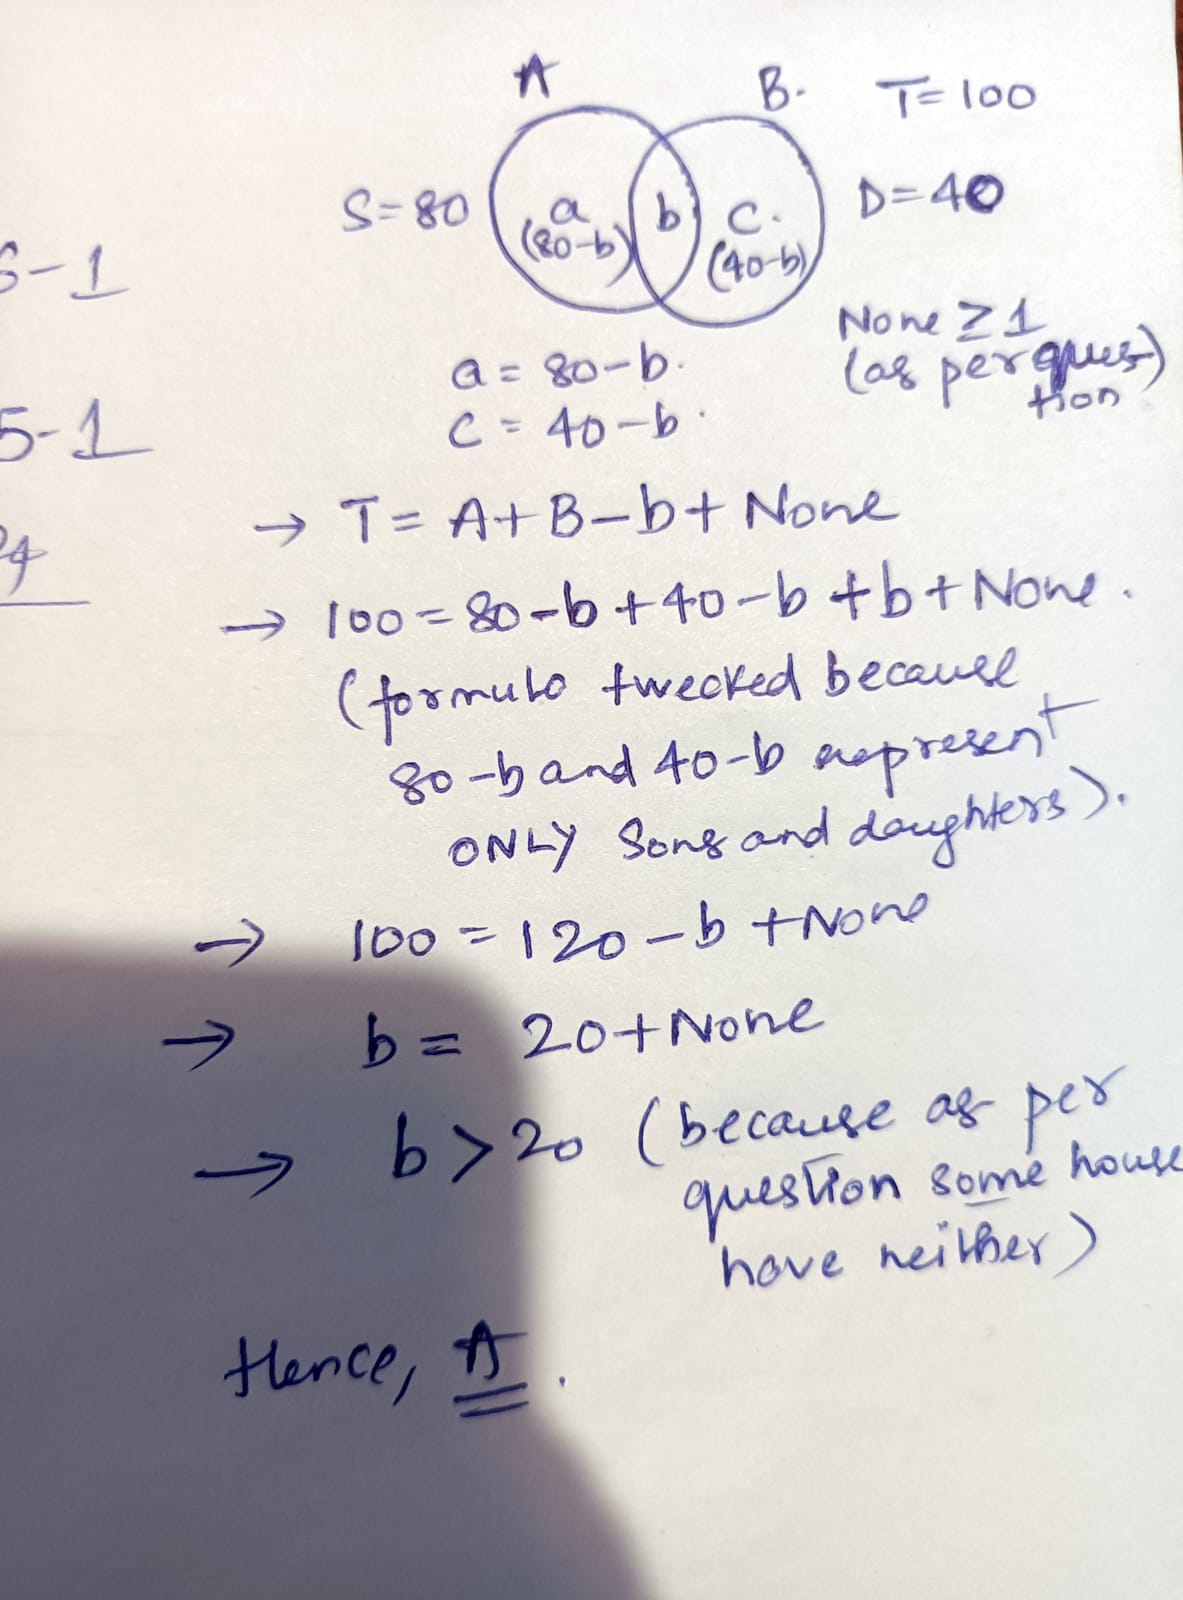 A
B.
T= 100
S=80
a
(80-b)
b
C.
(40-b)
D=40
5-1
None ≥ 1
(as per ques
tion)
a = 80-b.
C = 40-b.
5-1
→ T= A+B-b+ None
→ 100=80-b+40-b+b+None.
(formula twecked because
80-b and 40-b represent
ONLY Sons and daughters).
→ 100 = 120-b+None
→ b= 20+None
→ b>20 (because as per
question some house
have neither)
Hence, A.